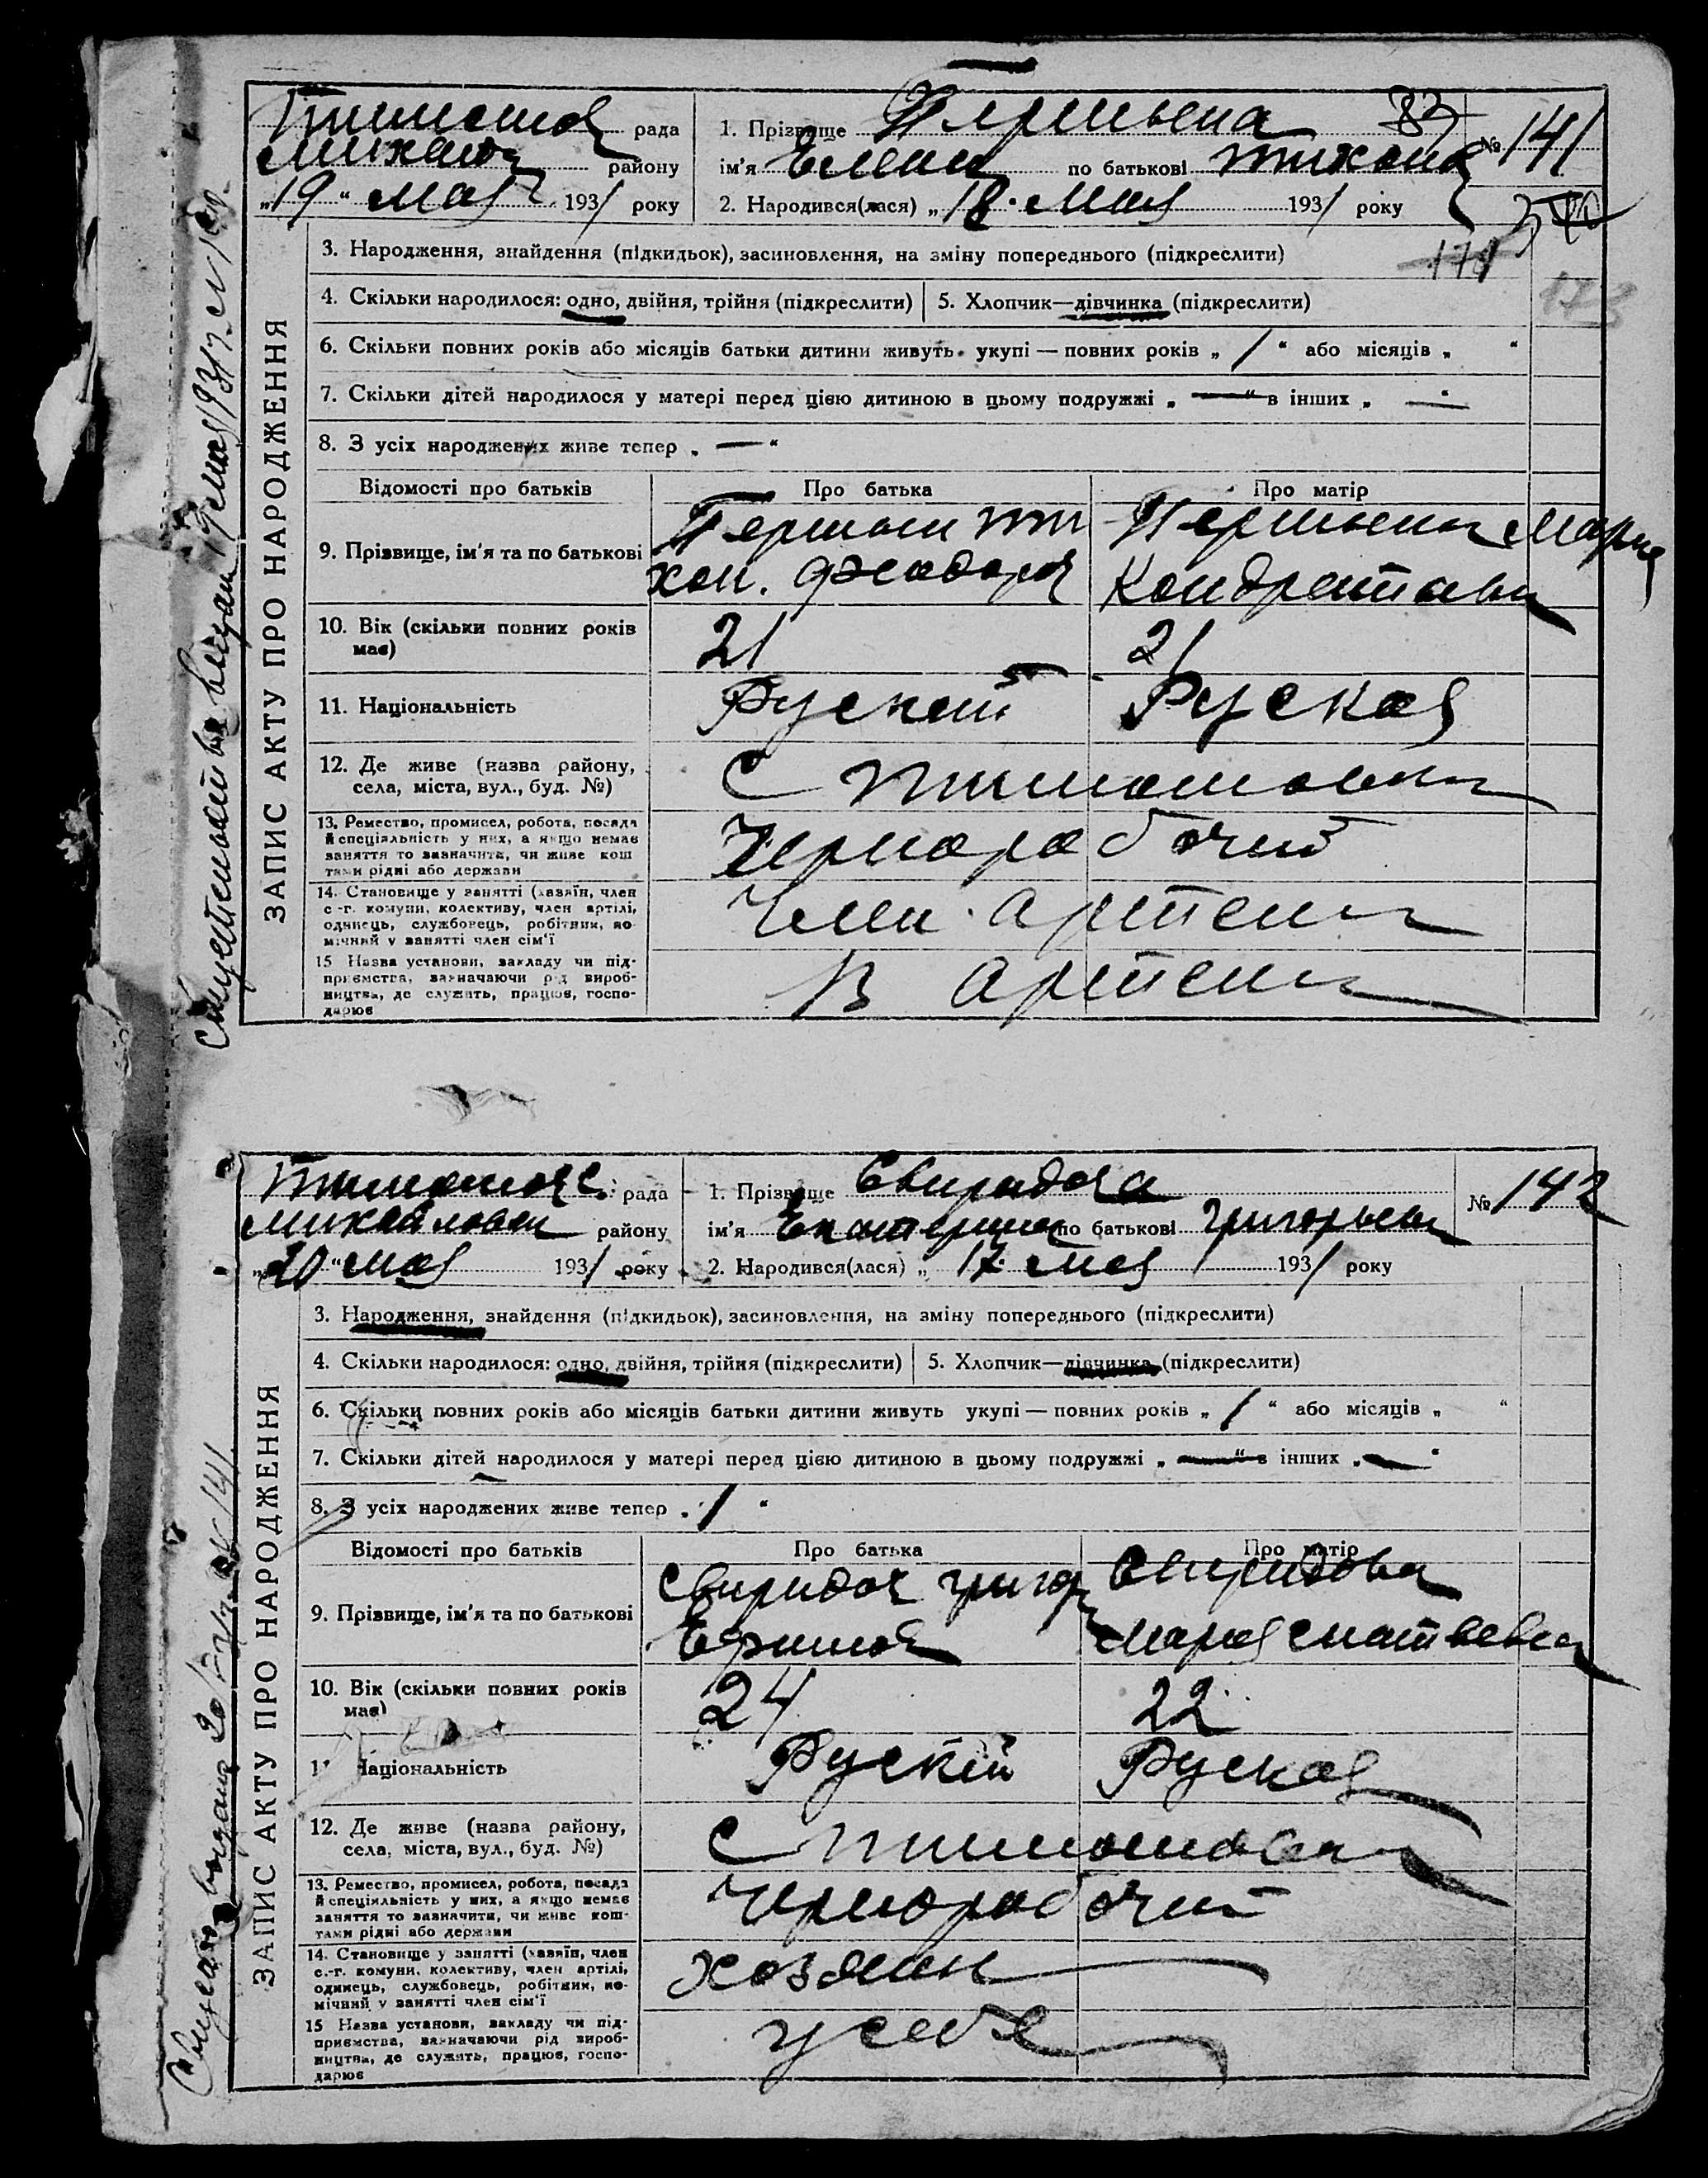 рада
району
„19“ мая 1931 року
1. Прізвище
ім'я Елена по батькові Тихонов
2. Народився(лася) „18. Мая 1931 року
№ 141
ЗАПИС АКТУ ПРО НАРОДЖЕННЯ
3. Народження, знайдення (підкидьок), засиновлення, на зміну попереднього (підкреслити)
4. Скільки народилося: одно, двійня, трійня (підкреслити)
5. Хлопчик—дівчинка (підкреслити)
173
6. Скільки повних років або місяців батьки дитини живуть укупі — повних років „ 1 “ або місяців „ “
7. Скільки дітей народилося у матері перед цією дитиною в цьому подружжі „ — “ в інших „ — “
8. З усіх народжених живе тепер „ — “
Відомості про батьків Про батька Про матір
9. Прізвище, ім'я та по батькові
Кондратовна
10. Вік (скільки повних років має) 21 21
11. Національність Руский Руская
12. Де живе (назва району, села, міста, вул., буд. №) С Тимошовка
13. Ремество, промисел, робота, посада й спеціяльність у них, а якщо немає заняття то зазначити, чи живе коштами рідні або держави
Чернорабочий
14. Становище у занятті (хазяїн, член с.-г. комуни, колективу, член артілі, одинець, службовець, робітник, помічний у занятті член сім'ї
Член артели
15 Назва установи, закладу чи підприємства, зазначаючи рід виробництва, де служить, працює, господарює
В артели
рада
Михайловск району
„20“ мая 1931 року
1. Прізвище Свиридова
ім'я Екатерина по батькові Григорьевн
2. Народився(лася) „ 17. мая 1931 року
№ 142
ЗАПИС АКТУ ПРО НАРОДЖЕННЯ
3. Народження, знайдення (підкидьок), засиновлення, на зміну попереднього (підкреслити)
4. Скільки народилося: одно, двійня, трійня (підкреслити)
5. Хлопчик—дівчинка (підкреслити)
6. Скільки повних років або місяців батьки дитини живуть укупі — повних років „ 1 “ або місяців „ “
7. Скільки дітей народилося у матері перед цією дитиною в цьому подружжі „ — “ в інших „ — “
8. З усіх народжених живе тепер „ 1 “
Відомості про батьків Про батька Про матір
9. Прізвище, ім'я та по батькові
Свиридов Григор Свиридова
Ефимов Мария Матвевна
10. Вік (скільки повних років має) 24 22
11 Національність Рускій Руская
12. Де живе (назва району, села, міста, вул., буд. №) С Тимошовка
13. Ремество, промисел, робота, посада й спеціяльність у них, а якщо немає заняття то зазначити, чи живе коштами рідні або держави
Чернорабочий
14. Становище у занятті (хазяїн, член с.-г. комуни, колективу, член артілі, одинець, службовець, робітник, помічний у занятті член сім'ї
хозяин
15 Назва установи, закладу чи підприємства, зазначаючи рід виробництва, де служить, працює, господарює
у себе